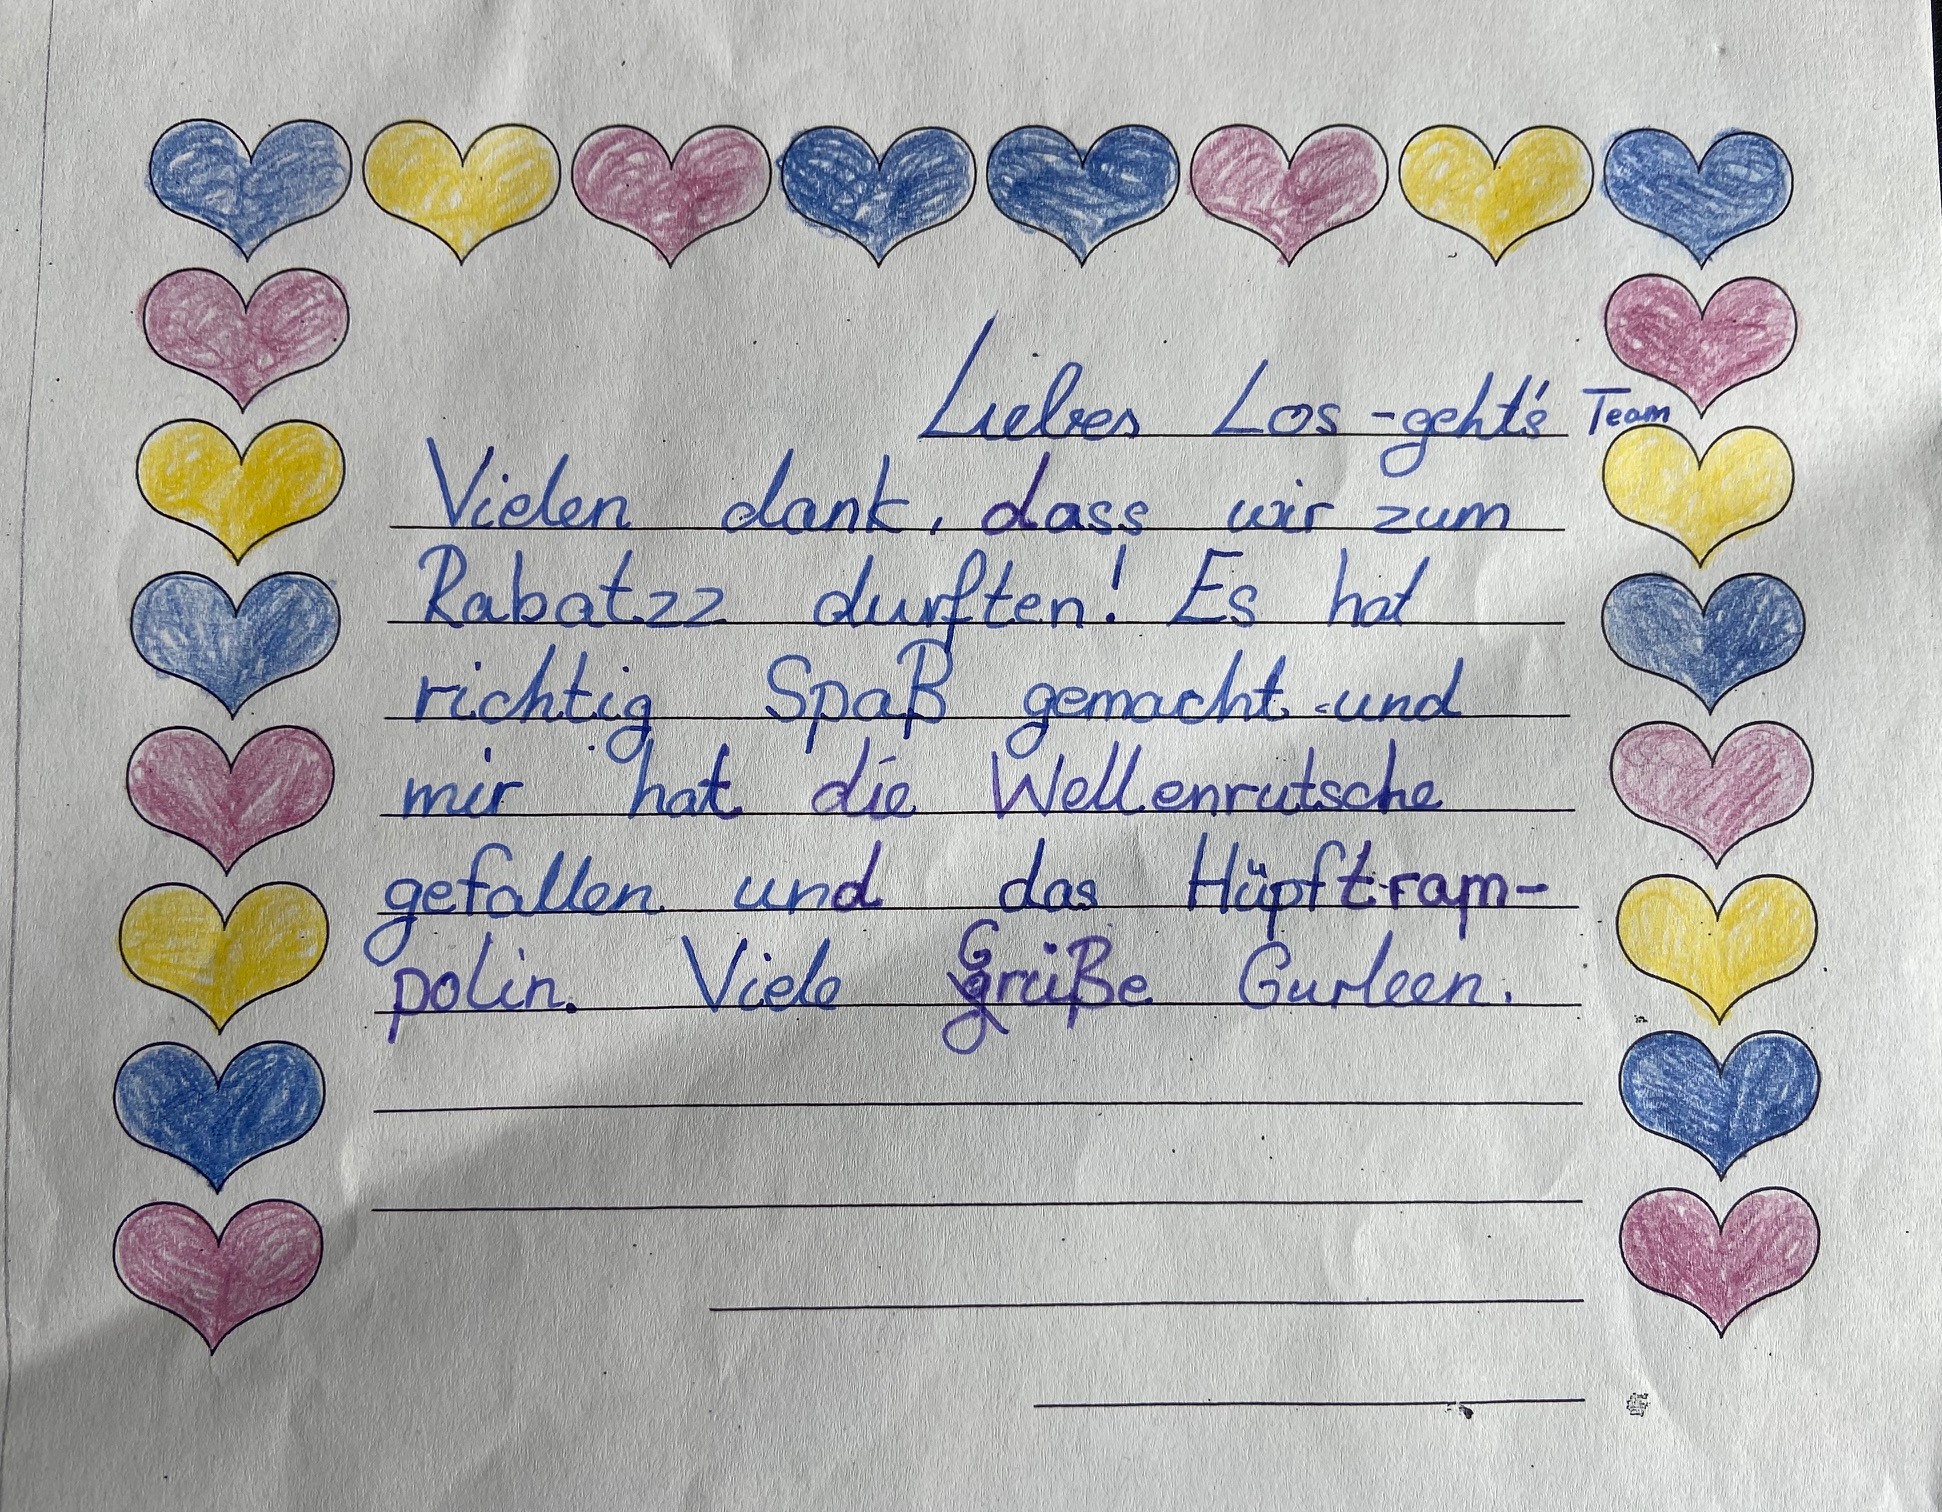 Liebes Los-geht's Team
Vielen dank, dass wir zum
Rabatzz durften! Es hat
richtig Spaß gemacht und
mir hat die Wellenrutsche
gefallen und das Hüpftram-
polin. Viele Grüße Gurleen.